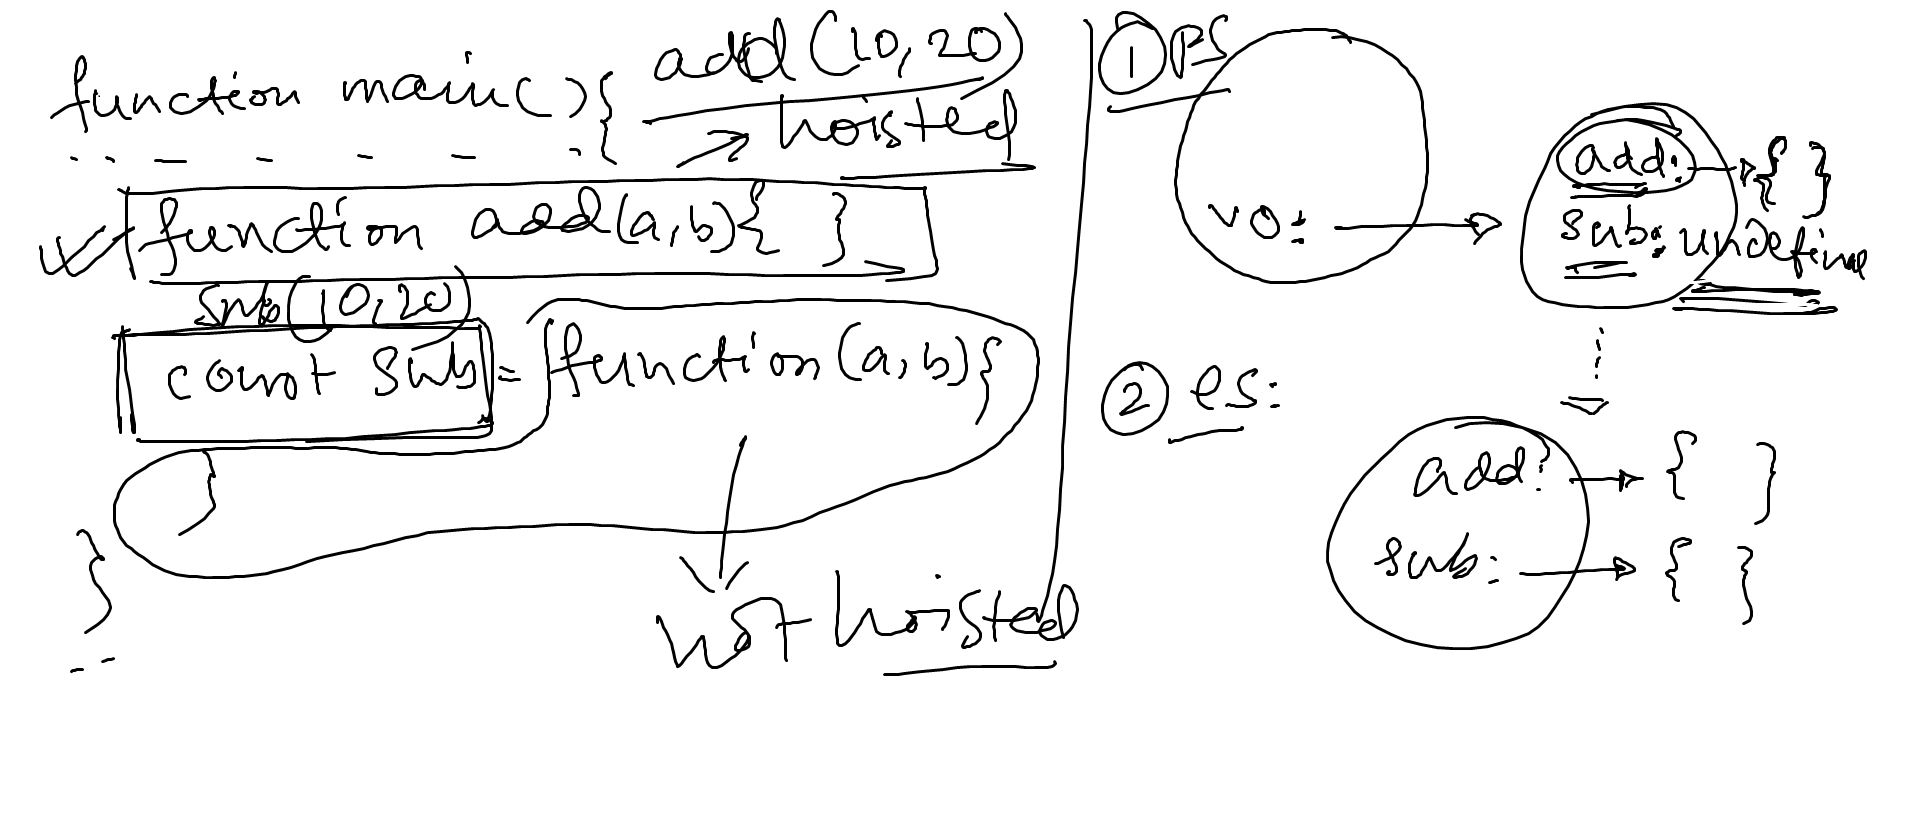 add(10,20)
function main(){
hoisted
function add(a,b){ }
sub(10,20)
const sub = function(a,b){
}
}
not hoisted
① PS
vo:
add: { }
sub: undefine
② es:
add: { }
sub: { }